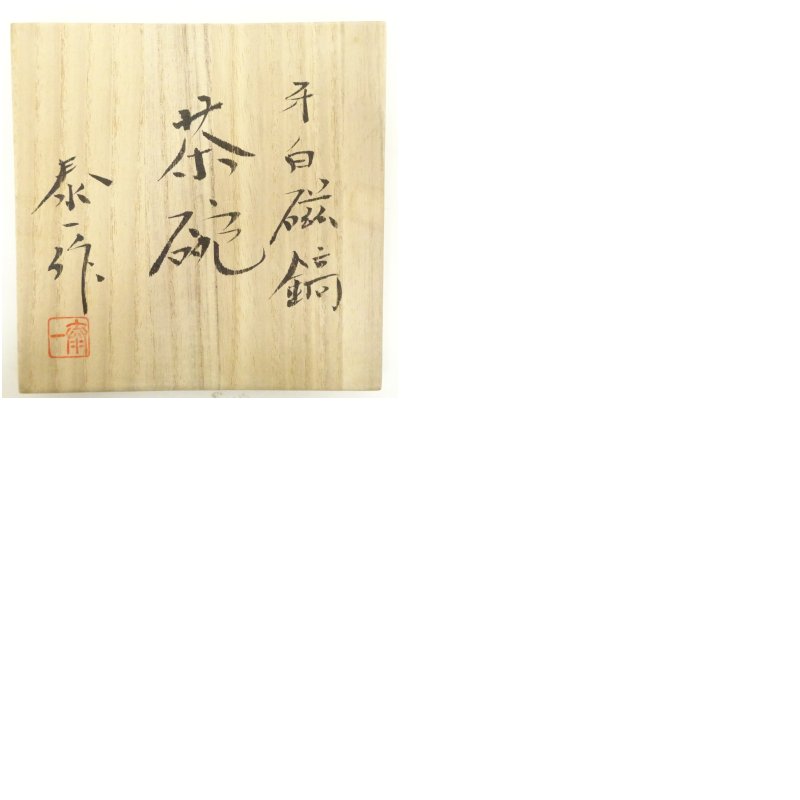 牙白磁鎬
茶碗
泰一作
泰一